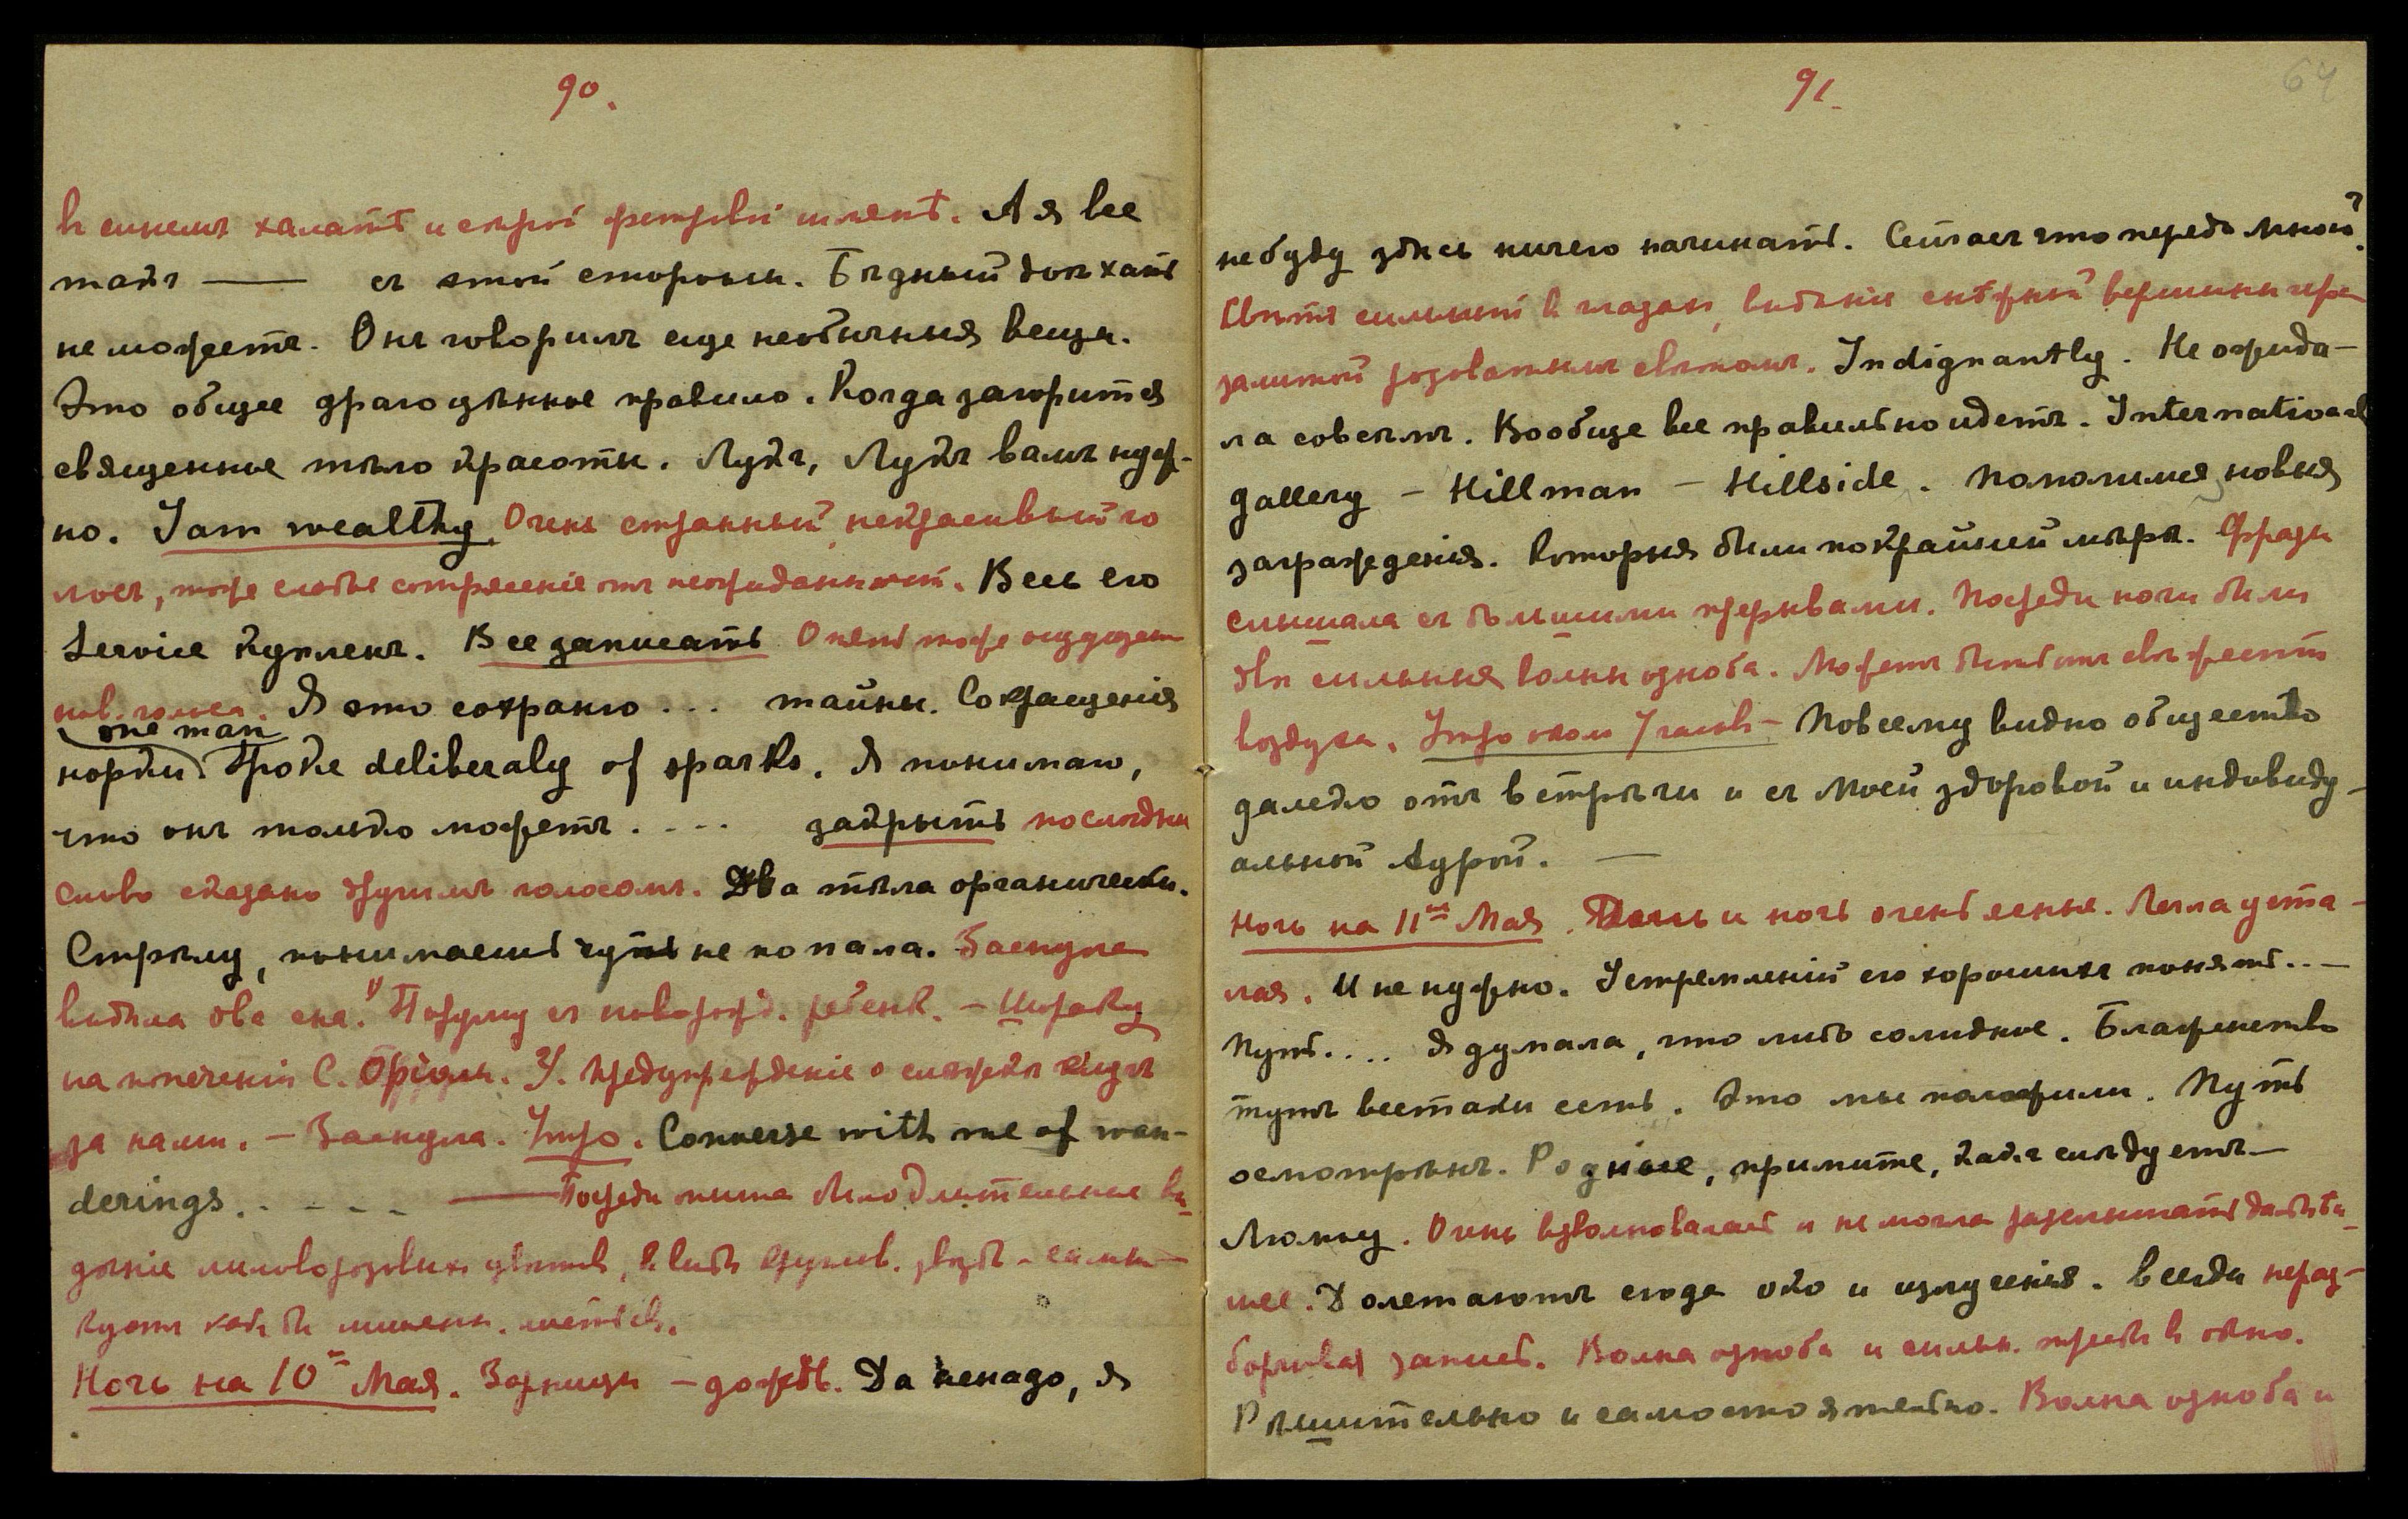 90.
в синемъ халатѣ и сѣрой фетровой шляпѣ. А я все
такъ —— съ этой стороны. Бѣдный доѣхать
не можетъ. Онъ говорилъ еще необычныя вещи.
Это общее драгоцѣнное правило. Когда загорится
священное тѣло красоты. Лукъ, Лукъ вамъ нуж-
но. I am wealthy. Очень странный, некрасивый го
лосъ, тоже слабое сотрясеніе отъ неожиданности. Весь его
service купленъ. Все записать Опять тоже ощущен
нов. голоса. Я это сохраню ... тайны. Сокращенія
one man
норки. Broke deliberaly of sparks. Я понимаю,
что онъ только можетъ .... закрыть послѣднее
слово сказано другимъ голосомъ. Два тѣла органически.
Стрѣлу, понимаешь чуть не попала. Заснула
видѣла два сна. новорожд. ребенк. —
на попеченіи С. У. предупрежденіе о слѣжкѣ
за нами. — Заснула. Утро. Converse with me of wan-
derings. - - - - — Посреди было длительное ви-
дѣніе лиловорозовыхъ цвѣтовъ, въ видѣ
какъ бы
Ночь на 10е Мая. Зарницы — дождь. Да ненадо, я
91.
64
не буду здѣсь ничего начинать. Сейчасъ что передъ мной?
Свѣтъ сильный въ глазахъ, видѣніе снѣжной вершины горы
залитой розоватымъ свѣтомъ. Indignantly. Не ожида-
ла совсѣмъ. Вообще все правильно идетъ. International
gallery — Hillman — Hillside. новыя
загражденія. Которыя были по крайней мѣрѣ. Фразы
слышала съ большими перерывами. Посреди ночи были
двѣ сильныя волны озноба. Можетъ быть отъ свѣжести
воздуха. Утро около 7 часовъ — По всему видно общество
далеко отъ встрѣчи и съ моей здоровой и индовиду-
альной Аурой. —
Ночь на 11ое Мая. День и ночь очень ясные. Легла уста-
лая. И не нужно. Устремленій его хорошихъ понять...—
Путь.... Я думала, что либо солидное. Блаженство
тутъ всетаки есть. Это мы положили. Путь
осмотрѣнъ. Родные, примите, какъ слѣдуетъ —
Люмоу. Очень взволновалась и не могла разслышать дальнѣй-
шее. Долетаютъ сюда око и излученія. Всегда нераз-
борчивая запись. Волна озноба и сильн. трескъ въ окно.
Рѣшительно и самостоятельно. Волна озноба и